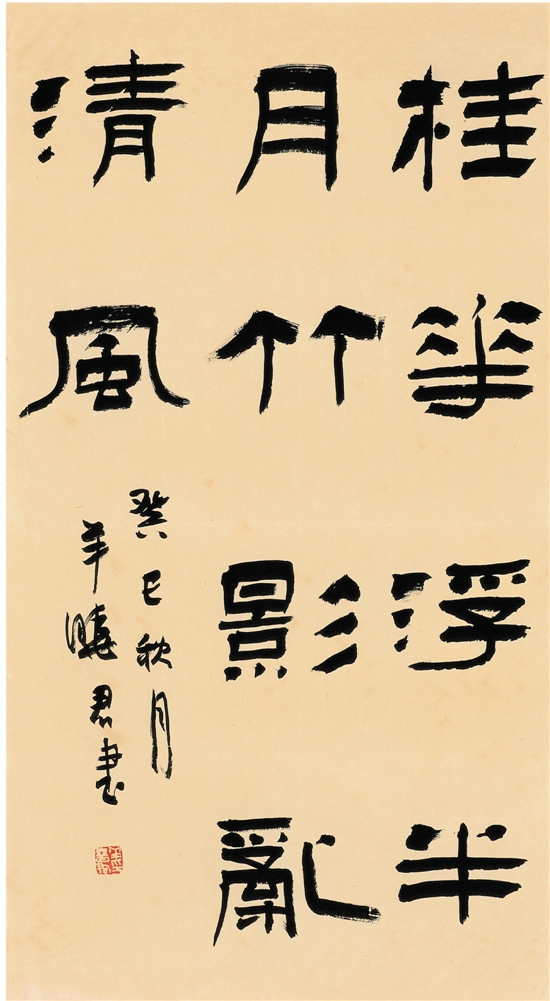 桂華浮半
月竹影亂
清風
癸巳秋月
羊曉君書